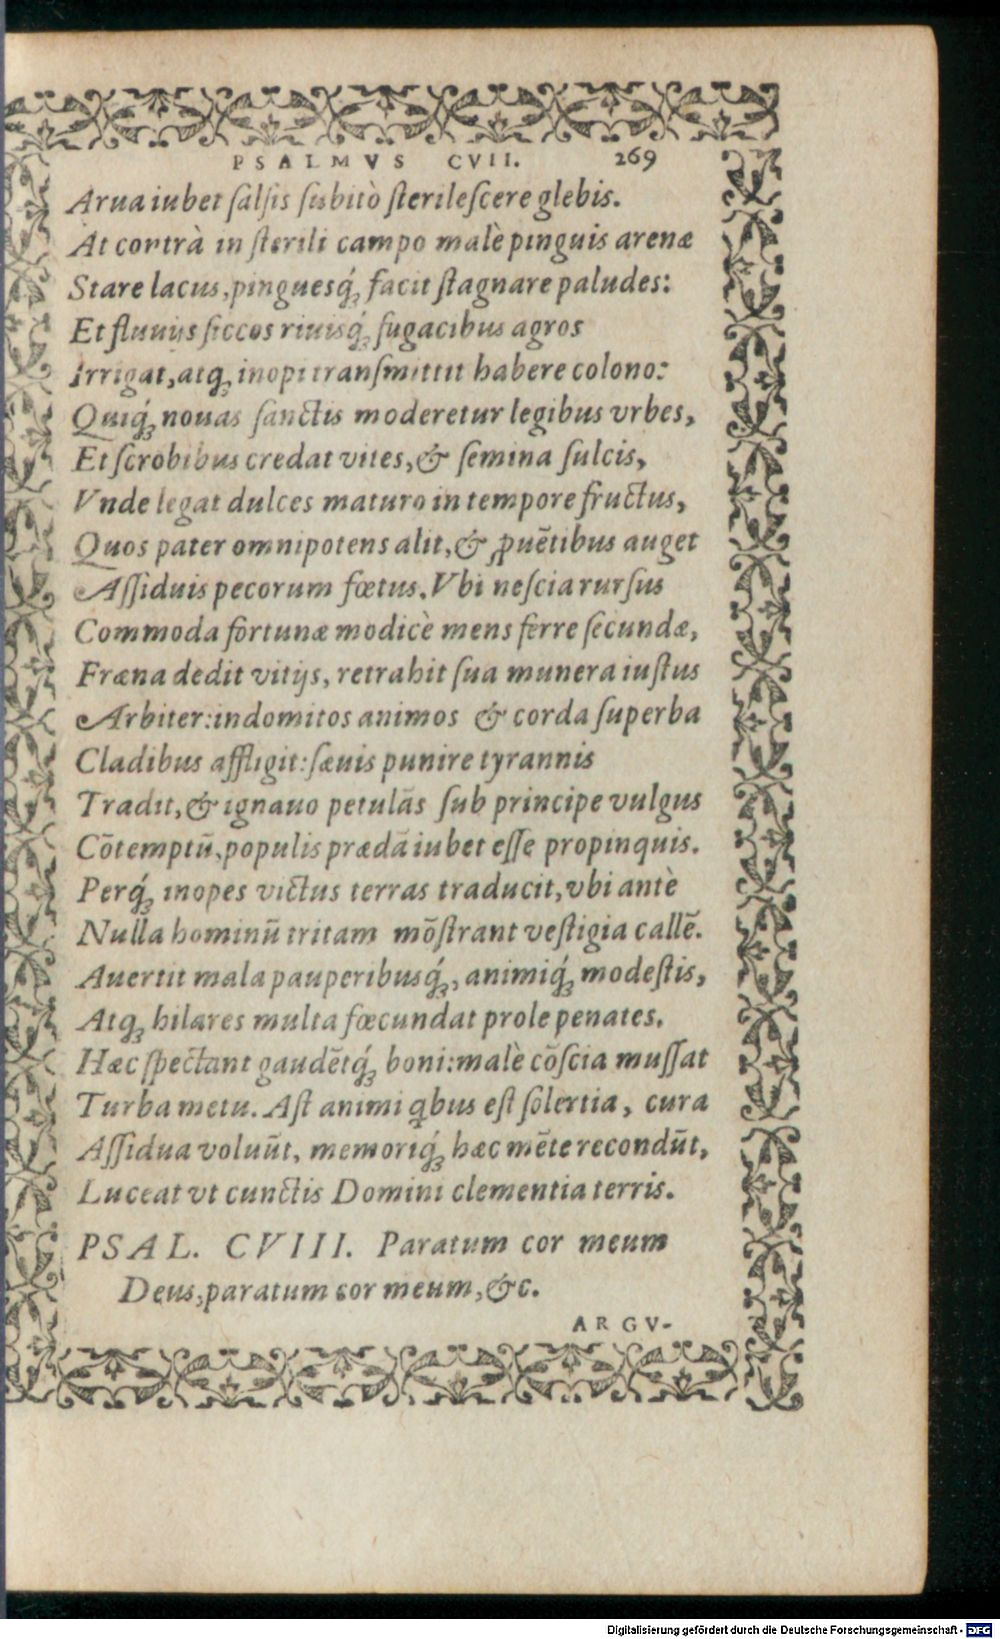 PSALMVS CVII. 269
Arua iubet ſalſis ſubitò ſterileſcere glebis.
At contrà in ſterili campo malè pinguis arenæ
Stare lacus, pinguesq́ꝫ facit ſtagnare paludes:
Et fluuijs ſiccos riuisq́ꝫ fugacibus agros
Irrigat, atqꝫ inopi tranſmittit habere colono:
Quiq́ꝫ nouas ſanctis moderetur legibus vrbes,
Et ſcrobibus credat vites, & ſemina ſulcis,
Vnde legat dulces maturo in tempore fructus,
Quos pater omnipotens alit, & ꝓuẽtibus auget
Aſſiduis pecorum fœtus. Vbi neſcia rurſus
Commoda fortunæ modicè mens ferre ſecundæ,
Fræna dedit vitijs, retrahit ſua munera iuſtus
Arbiter: indomitos animos & corda ſuperba
Cladibus affligit: ſæuis punire tyrannis
Tradit, & ignauo petulãs ſub principe vulgus
Cõtemptũ, populis prædã iubet eſſe propinquis.
Perq́ꝫ inopes victus terras traducit, vbi antè
Nulla hominũ tritam mõſtrant veſtigia callẽ.
Auertit mala pauperibusq́ꝫ, animiq́ꝫ modeſtis,
Atqꝫ hilares multa fœcundat prole penates.
Hæc ſpectant gaudẽtq́ꝫ boni: malè cõſcia muſſat
Turba metu. Aſt animi qͥbus eſt ſolertia, cura
Aſſidua voluũt, memoriq́ꝫ hæc mẽte recondũt,
Luceat vt cunctis Domini clementia terris.
PSAL. CVIII. Paratum cor meum
Deus, paratum cor meum, &c.
ARGV-
Digitalisierung gefördert durch die Deutsche Forschungsgemeinschaft - DFG